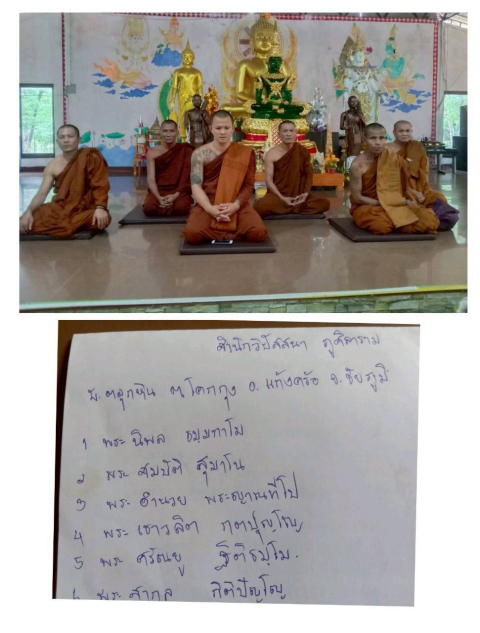 สำนักวิปัสสนา ภูศิตาราม
บ. ตลุกหิน ต. โคกกุง อ. แก้งคร้อ จ. ชัยภูมิ
1 พระ นิพล ธมฺมกาโม
2 พระ สมบัติ สุมาโน
3 พระ อำนวย
4 พระ เชาวลิต กตปุญฺโญ
5 พระ ศรัณยู ฐิติธมฺโม.
6 พระ สากล ฐิติปัญฺโญ